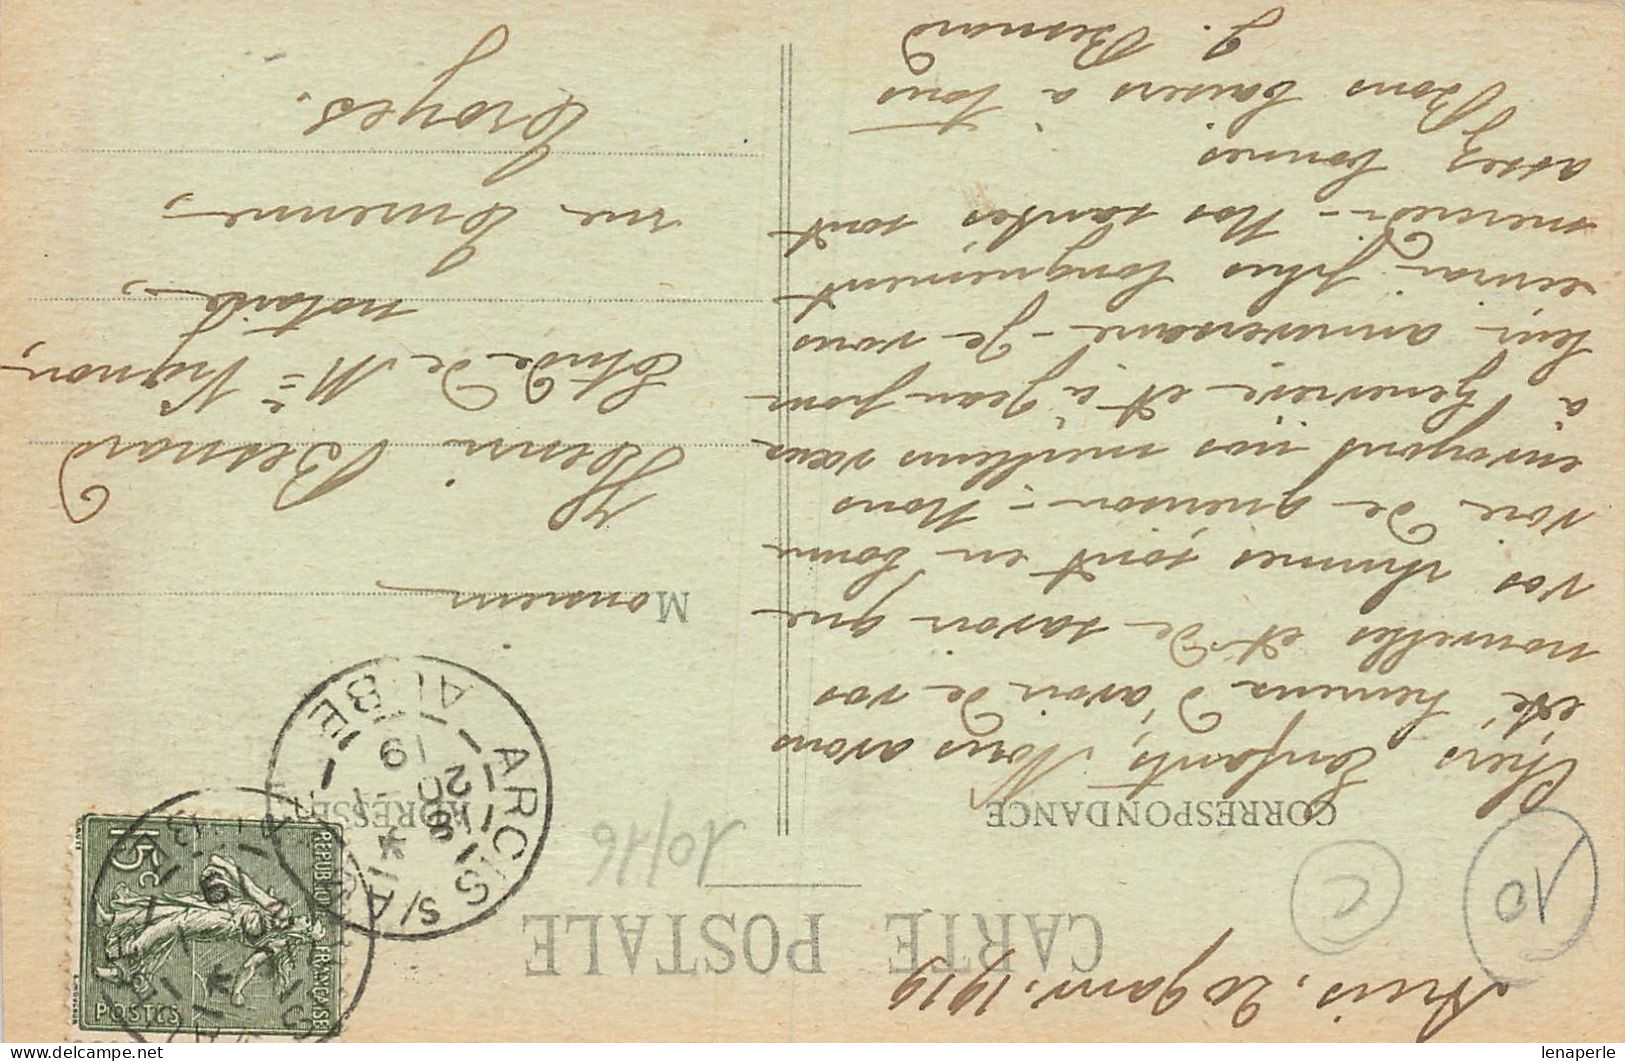 Arcis, 20 Janv. 1919
CARTE POSTALE
10/16
10
C
CORRESPONDANCE
ADRESSE
Chers Enfants, Nous avons
été heureux d'avoir de vos
nouvelles et de savoir que
vos rhumes sont en bonne
voie de guérison - Nous
envoyons nos meilleurs vœux
à Geneviève et à Jean pour
leur anniversaire - Je vous
écrirai plus longuement
mercredi - Nos santés sont
assez bonnes
Bons baisers à tous
J. Besnard
Monsieur
Henri Besnard
Etude de Me Vignon,
notaire,
rue Turenne,
Troyes.
ARCIS S/
AUBE
18
20 -1
19
REPUBLIQUE FRANÇAISE
15c
POSTES
lenaperle